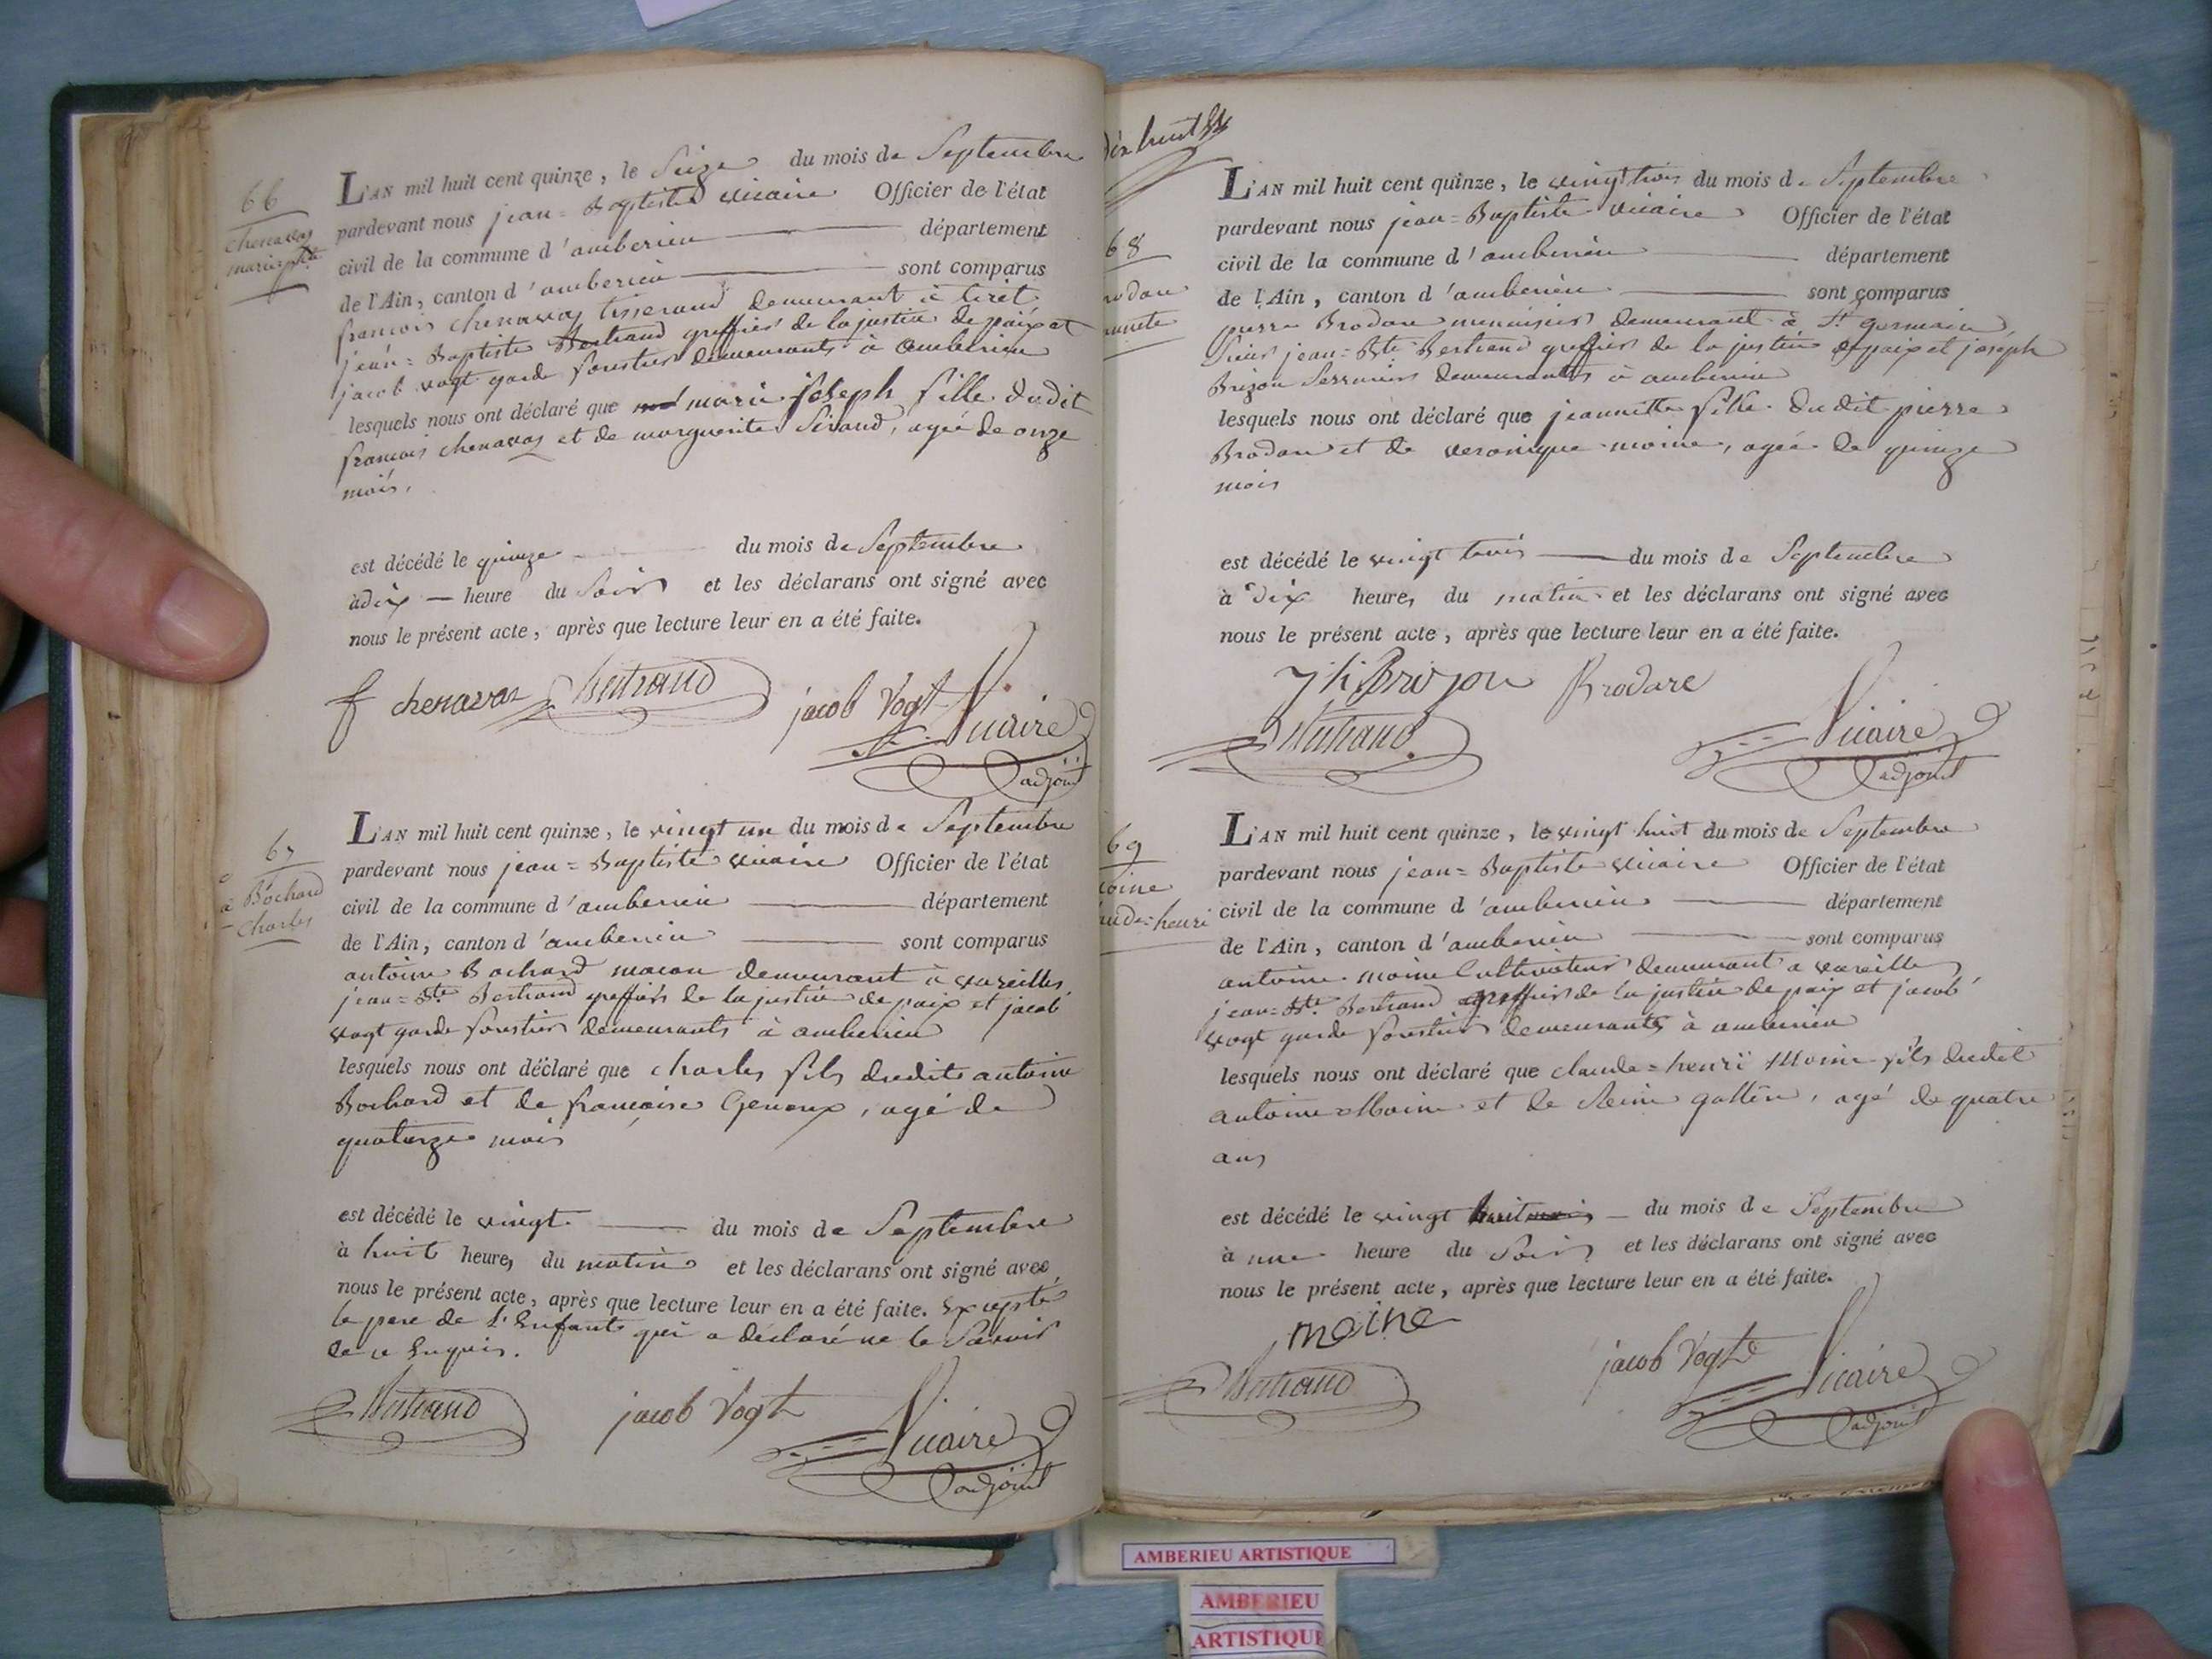 66
chenavas
marie jph.te
L'AN mil huit cent quinze, le Seize du mois de Septembre
pardevant nous jean = Baptiste vicaire Officier de l'état
civil de la commune d'amberieu département
de l'Ain, canton d'amberieu sont comparus
francois chenavas tisserand demeurant à tiret
jean = Baptiste Bertrand greffier de la justice de paix et
jacob vogt garde forestier demeurants à amberieu
lesquels nous ont déclaré que marie joseph fille dudit
francois chenavas et de marguerite Siraud, agée de onze
mois.
est décédé le quinze du mois de Septembre
à dix heure du Soir et les déclarans ont signé avec
nous le présent acte, après que lecture leur en a été faite.
f chenavas Bertrand jacob Vogt Vicaire
adjoint
67
Bochard
Charles
L'AN mil huit cent quinze, le vingt un du mois de Septembre
pardevant nous jean = Baptiste vicaire Officier de l'état
civil de la commune d'amberieu département
de l'Ain, canton d'amberieu sont comparus
antoine Bochard macon demeurant à vareilles
jean = Bte Bertrand greffier de la justice de paix et jacob
vogt garde forestier demeurants à amberieu
lesquels nous ont déclaré que charles fils dudit antoine
Bochard et de françoise Genoux, agé de
quatorze mois
est décédé le vingt du mois de Septembre
à huit heures du matin et les déclarans ont signé avec
nous le présent acte, après que lecture leur en a été faite. Excepté
le pere de l'Enfant qui a déclaré ne le Savoir
de ce Enquis.
Bertrand jacob Vogt Vicaire
adjoint
dix huit
68
rodare
nnette
L'AN mil huit cent quinze, le vingt trois du mois de Septembre
pardevant nous jean = Baptiste vicaire Officier de l'état
civil de la commune d'amberieu département
de l'Ain, canton d'amberieu sont comparus
pierre Brodare menuisier demeurant à St germain
Sieur jean = Bte Bertrand greffier de la justice de paix et joseph
Brizon Serrurier demeurants à amberieu
lesquels nous ont déclaré que jeannette fille dudit pierre
Brodare et de veronique moine, agée de quinze
mois
est décédé le vingt trois du mois de Septembre
à dix heures du matin et les déclarans ont signé avec
nous le présent acte, après que lecture leur en a été faite.
Brizon Brodare
Bertrand Vicaire
adjoint
69
oine
aude = henri
L'AN mil huit cent quinze, le vingt huit du mois de Septembre
pardevant nous jean = Baptiste vicaire Officier de l'état
civil de la commune d'amberieu département
de l'Ain, canton d'amberieu sont comparus
antoine moine Cultivateur demeurant a vareilles
jean = Bte Bertrand greffier de la justice de paix et jacob
vogt garde forestier demeurants à amberieu
lesquels nous ont déclaré que claude = henri Moine fils dudit
antoine Moine et de Reine gallin, agé de quatre
ans
est décédé le vingt huit du mois de Septembre
à une heure du Soir et les déclarans ont signé avec
nous le présent acte, après que lecture leur en a été faite.
moine
Bertrand jacob Vogt Vicaire
adjoint
AMBERIEU ARTISTIQUE
AMBERIEU
ARTISTIQUE